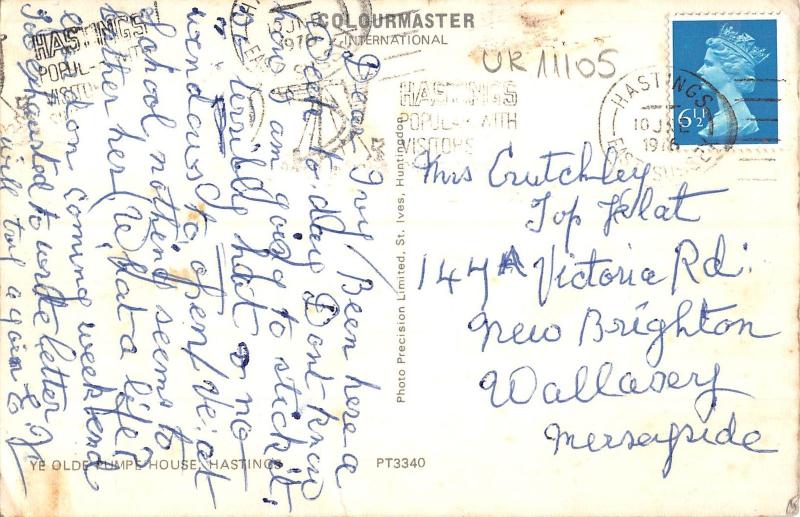 COLOURMASTER
INTERNATIONAL
UR 11105
HASTINGS
POPULAR WITH
VISITORS
HASTINGS
POPULAR WITH
VISITORS
HASTINGS
10 JNE
1976
EAST SUSSEX
6½P
Dear Ivy/Been here a
week to-day Dont know
how I am going to stick it.
It's terribly hot & no
windows to open/Vi at
School, nothing seems to
bother her/What a life?
London coming weekend
Too exhausted to write letter
will try again
Mrs Crutchley
Top Flat
147A Victoria Rd.
New Brighton
Wallasey
Merseyside
Photo Precision Limited, St. Ives, Huntingdon
YE OLDE PUMPE HOUSE, HASTINGS
PT3340